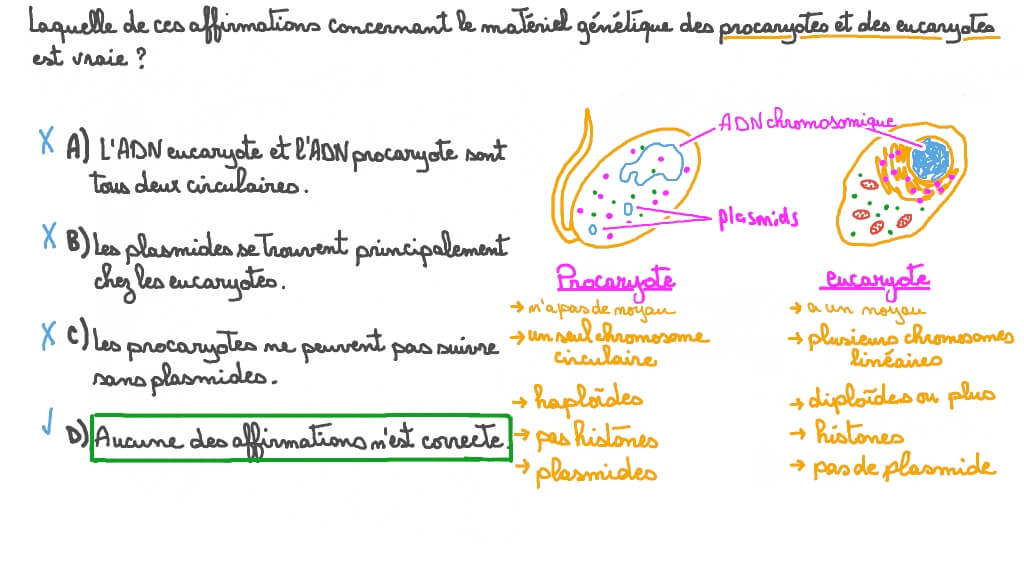 Laquelle de ces affirmations concernant le matériel génétique des procaryotes et des eucaryotes
est vraie ?
X A) L'ADN eucaryote et l'ADN procaryote sont
tous deux circulaires.
X B) Les plasmides se trouvent principalement
chez les eucaryotes.
X C) Les procaryotes ne peuvent pas suivre
sans plasmides.
✓ D) Aucune des affirmations n'est correcte.
ADN chromosomique
plasmids
Procaryote
→ n'a pas de noyau
→ un seul chromosome
circulaire
→ haploïdes
→ pas histones
→ plasmides
eucaryote
→ a un noyau
→ plusieurs chromosomes
linéaires
→ diploïdes ou plus
→ histones
→ pas de plasmide